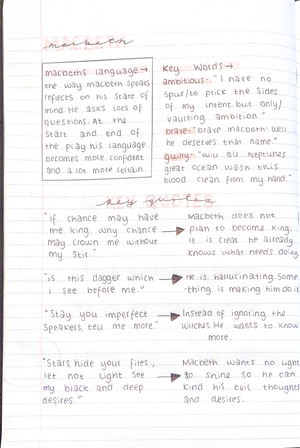 macbeth
macbeths language →
the way macbeth speaks
reflects on his state of
mind. He asks lots of
questions. At the
start and end of
the play his language
becomes more confident
and a lot more certain.
Key Words →
ambitious- "I have no
spur/to prick the sides
of my intent, but only/
vaulting ambition."
brave- "brave macbeth well
he deserves that name."
guilty- "will all Neptunes
great ocean wash this
blood clean from my hand."
key quotes
"if chance may have
me king, why chance
may crown me without
my stir."
Macbeth does not
plan to become king,
it is clear he already
knows what needs doing
"is this dagger which
i see before me."
He is hallucinating. Some
thing is making him do it
"Stay you imperfect
speakers, tell me more."
Instead of ignoring the
witches. He wants to know
more.
"Stars, hide your fires;,
let not light see
my black and deep
desires."
Macbeth wants no light
to shine so he can
hind his evil thoughts
and desires.